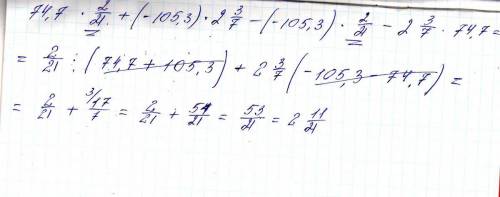 74,7 · 2/21 + (-105,3) · 2 3/7 - (-105,3) · 2/21 - 2 3/7 · 74,7 =
= 2/21 : (74,7 + 105,3) + 2 3/7 (-105,3 - 74,7) =
= 2/21 + 3/17/7 = 2/21 + 51/21 = 53/21 = 2 11/21